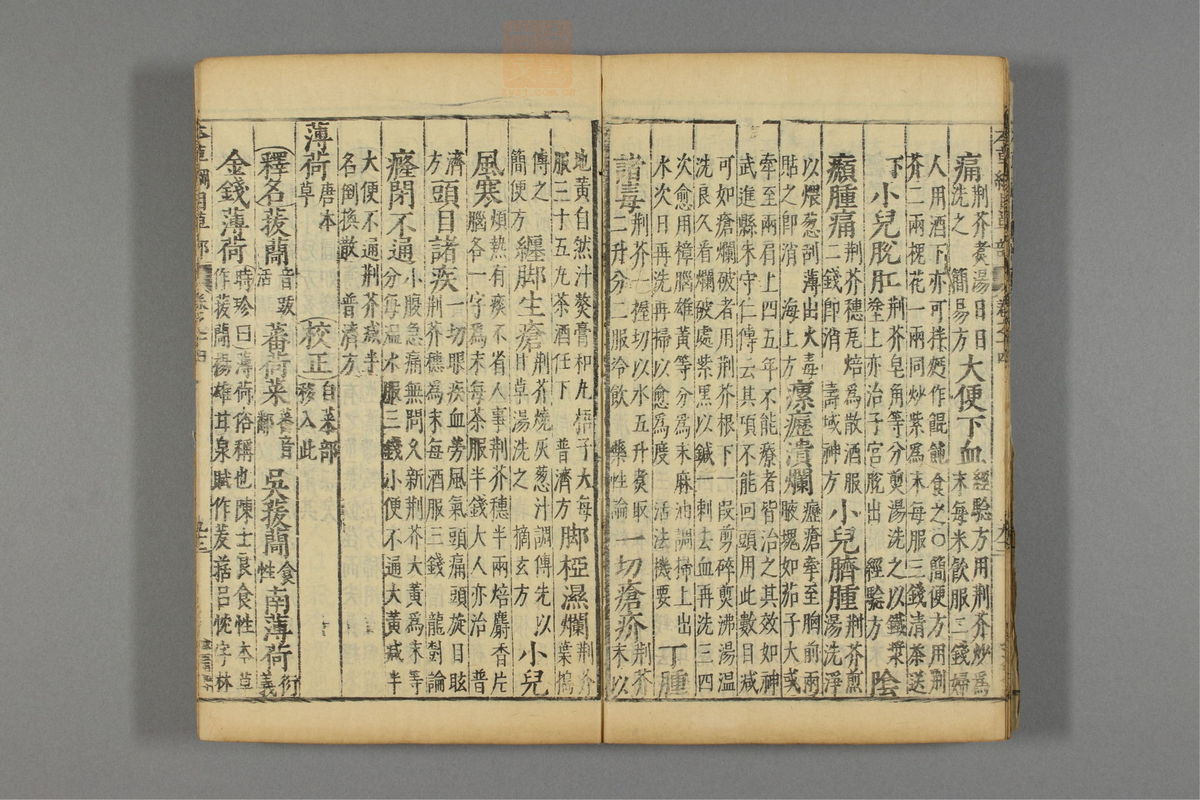 痛荊芥煑湯日日洗之 簡易方 大便下血經驗方用荊芥炒爲末每米飲服二錢婦
人用酒下亦可拌麪作餛飩食之○簡便方用荊芥二兩槐花一兩同炒紫爲末每服三錢清茶送
下 小兒脫肛荊芥皂角等分煎湯洗之以鐵漿塗上亦治子宮脫出 經驗方 陰
㿗腫痛荊芥穗瓦焙爲散酒服二錢即消 壽域神方 小兒臍腫荊芥煎湯洗淨
以煨葱刮薄出火毒貼之即消 海上方 瘰癧潰爛癧瘡牽至胸前兩腋塊如茄子大或
牽至兩肩上四五年不能療者皆治之其效如神武進縣朱守仁傳云其項不能回頭用此數日减
可如瘡爛破者用荊芥根下一段剪碎煎沸湯溫洗良久看爛破處紫黑以鍼一刺去血再洗三四
次愈用樟腦雄黃等分爲末麻油調掃上出水次日再洗再掃以愈爲度 活法機要 丁腫
諸毒荊芥一握切以水五升煑取二升分二服冷飲 藥性論 一切瘡疥荊芥末以
地黃自然汁熬膏和丸梧子大每服三十五丸茶酒任下 普濟方 脚椏濕爛荊芥葉搗
傅之 簡便方 纏脚生瘡荊芥燒灰葱汁調傅先以甘草湯洗之 摘玄方 小兒
風寒煩熱有痰不省人事荊芥穗半兩焙麝香片腦各一字爲末每茶服半錢大人亦治 普
濟方 頭目諸疾一切眼疾血勞風氣頭痛頭旋目眩荊芥穗爲末每酒服三錢 龍樹論
癃閉不通小腹急痛無問久新荊芥大黃爲末等分每温水服三錢小便不通大黃减半
大便不通荊芥减半名倒換散 普濟方
薄荷唐本草 校正自菜部移入此
釋名菝䕞音跋活 蕃荷菜蕃音鄱 吳菝䕞食性 南薄荷衍義
金錢薄荷時珍曰薄荷俗稱也陳士良食性本草作菝䕞楊雄甘泉賦作茇葀呂忱字林
本草綱目草部 卷之十四